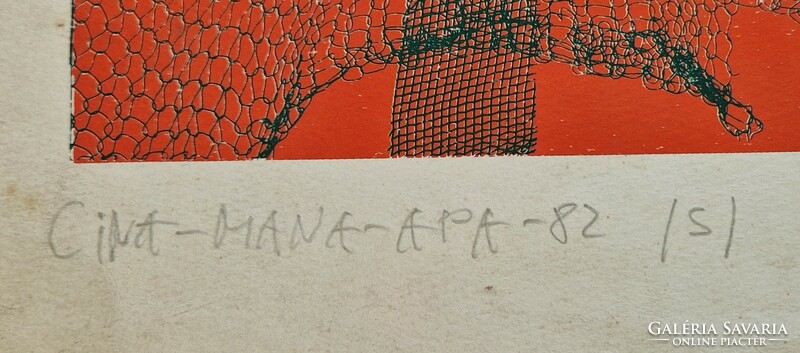 CiNA-MANA-APA-82 /S/
GALÉRIA SAVARIA
ONLINE PIACTÉR